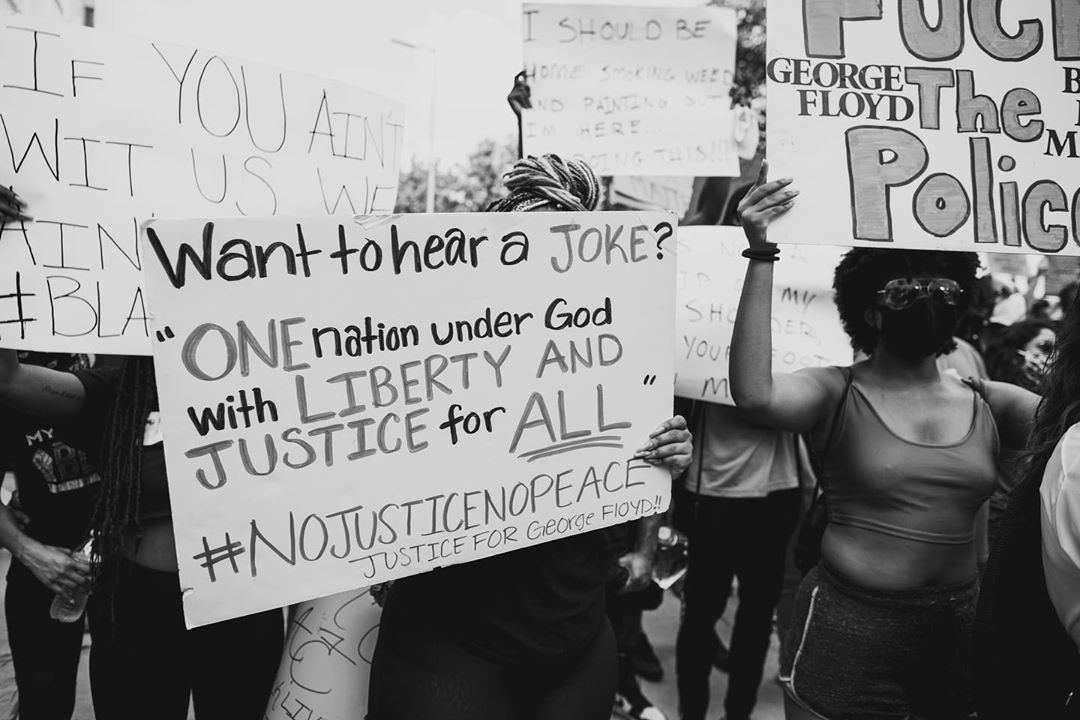 IF YOU AIN'T
WIT US WE
AIN
#BLA
I SHOULD BE
HOME SMOKING WEED
AND PAINTING BUT
I'M HERE...
DOING THIS!!!
FUCK
GEORGE
FLOYD
The
Polic
B
M
Want to hear a JOKE?
"ONE nation under God
with LIBERTY AND
JUSTICE for ALL"
#NOJUSTICENOPEACE
JUSTICE FOR George FLOYD!!
MY
SHOULDER,
YOUR FOOT
MY